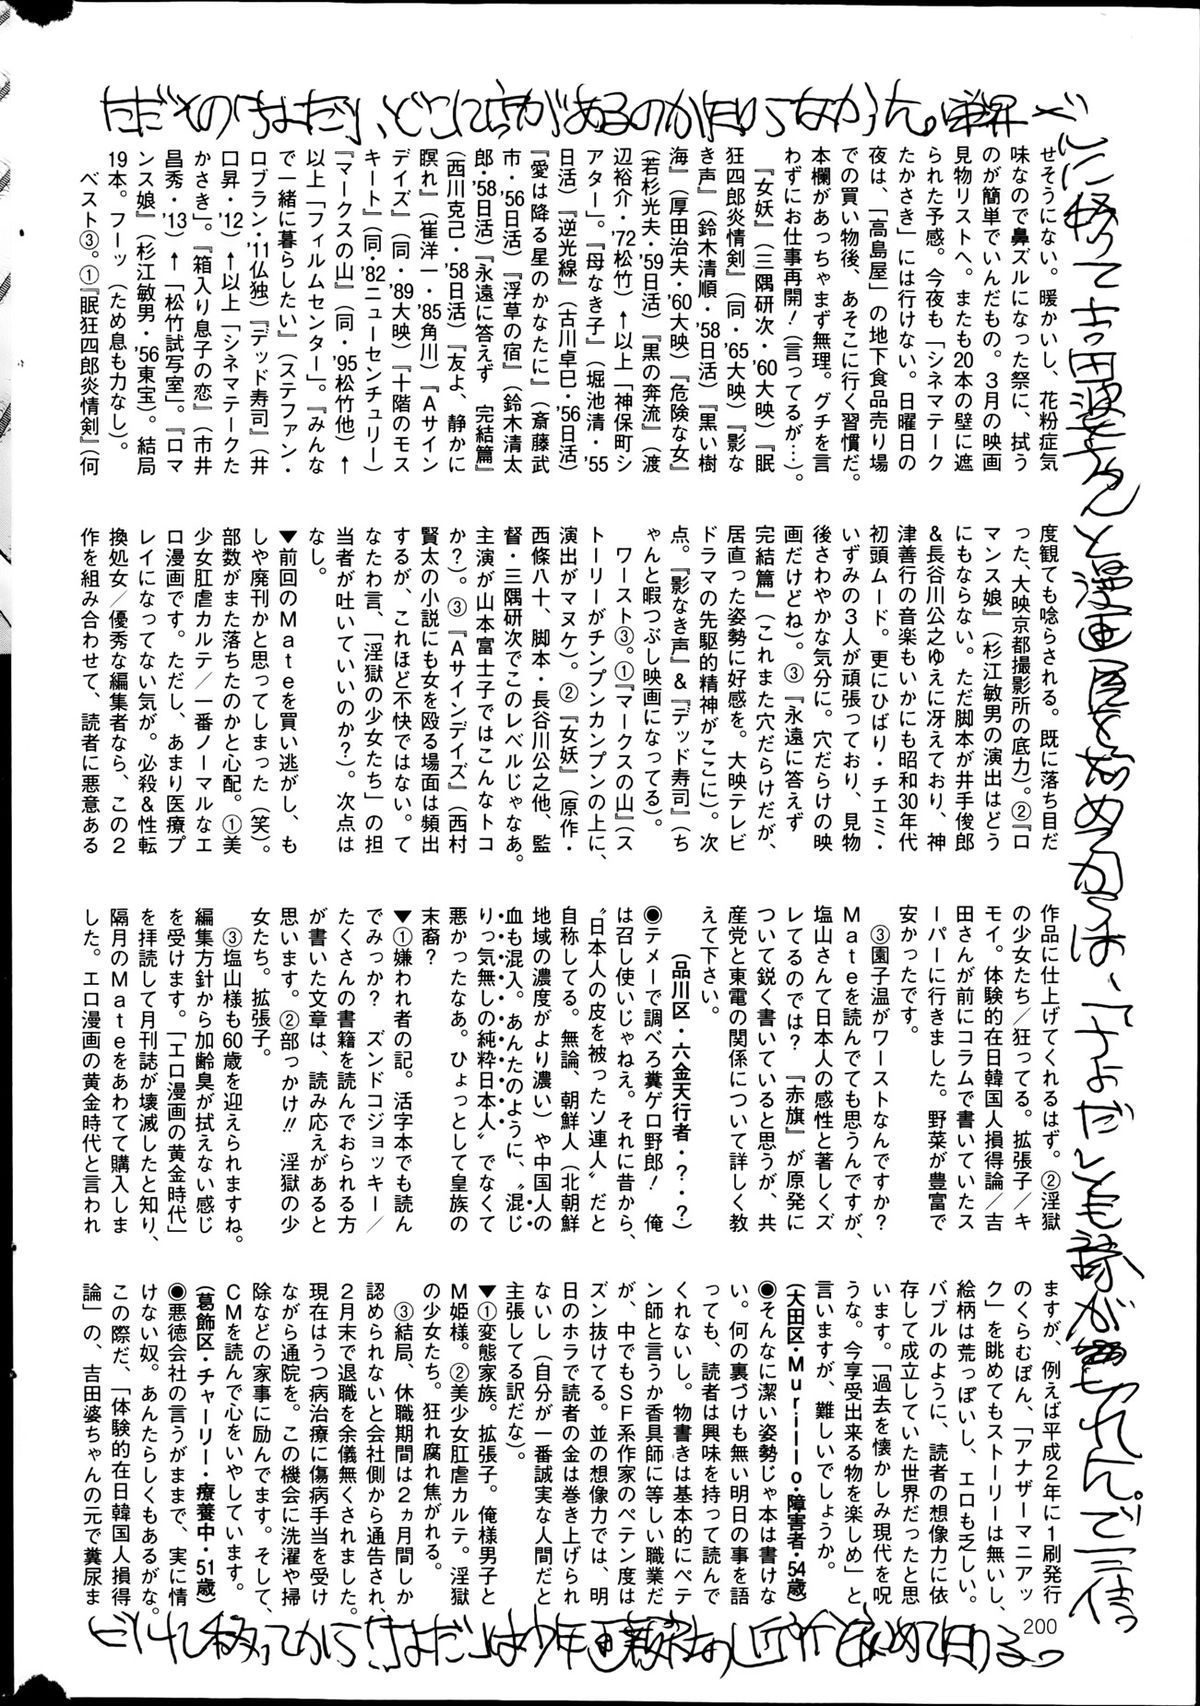 せそうにない。暖かいし、花粉症気
味なので鼻ズルになった祭に、拭う
のが簡単でいんだもの。3月の映画
見物リストへ。またも20本の壁に遮
られた予感。今夜も「シネマテーク
たかさき」には行けない。日曜日の
夜は、「高島屋」の地下食品売り場
での買い物後、あそこに行く習慣だ。
本欄があっちゃまず無理。グチを言
わずにお仕事再開！（言ってるが…）。
『女妖』（三隅研次・'60大映）『眠
狂四郎炎情剣』（同・'65大映）『影な
き声』（鈴木清順・'58日活）『黒い樹
海』（厚田治夫・'60大映）『危険な女』
（若杉光夫・'59日活）『黒の奔流』（渡
辺裕介・'72松竹）↑以上「神保町シ
アター」。『母なき子』（堀池清・'55
日活）『逆光線』（古川卓巳・'56日活）
『愛は降る星のかなたに』（斎藤武
市・'56日活）『浮草の宿』（鈴木清太
郎・'58日活）『永遠に答えず　完結篇』
（西川克己・'58日活）『友よ、静かに
瞑れ』（崔洋一・'85角川）『Aサイン
デイズ』（同・'89大映）『十階のモス
キート』（同・'82ニューセンチュリー）
『マークスの山』（同・'95松竹他）↑
以上「フィルムセンター」。『みんな
で一緒に暮らしたい』（ステファン・
ロブラン・'11仏独）『デッド寿司』（井
口昇・'12）↑以上「シネマテークた
かさき」。『箱入り息子の恋』（市井
昌秀・'13）↑「松竹試写室」。『ロマ
ンス娘』（杉江敏男・'56東宝）。結局
19本。フーッ（ため息も力なし）。
ベスト③。①『眠狂四郎炎情剣』（何
度観ても唸らされる。既に落ち目だ
った、大映京都撮影所の底力）。②『ロ
マンス娘』（杉江敏男の演出はどう
にもならない。ただ脚本が井手俊郎
＆長谷川公之ゆえに冴えており、神
津善行の音楽もいかにも昭和30年代
初頭ムード。更にひばり・チエミ・
いずみの3人が頑張っており、見物
後さわやかな気分に。穴だらけの映
画だけどね）。③『永遠に答えず
完結篇』（これまた穴だらけだが、
居直った姿勢に好感を。大映テレビ
ドラマの先駆的精神がここに）。次
点。『影なき声』＆『デッド寿司』（ち
ゃんと暇つぶし映画になってる）。
ワースト③。①『マークスの山』（ス
トーリーがチンプンカンプンの上に、
演出がマヌケ）。②『女妖』（原作・
西條八十、脚本・長谷川公之他、監
督・三隅研次でこのレベルじゃなあ。
主演が山本富士子ではこんなトコ
か？）。③『Aサインデイズ』（西村
賢太の小説にも女を殴る場面は頻出
するが、これほど不快ではない。て
なたわ言、「淫獄の少女たち」の担
当者が吐いていいのか？）。次点は
なし。
▼前回のMateを買い逃がし、も
しや廃刊かと思ってしまった（笑）。
部数がまた落ちたのかと心配。①美
少女肛虐カルテ／一番ノーマルなエ
ロ漫画です。ただし、あまり医療プ
レイになってない気が。必殺＆性転
換処女／優秀な編集者なら、この2
作を組み合わせて、読者に悪意ある
作品に仕上げてくれるはず。②淫獄
の少女たち／狂ってる。拡張子／キ
モイ。体験的在日韓国人損得論／吉
田さんが前にコラムで書いていたス
ーパーに行きました。野菜が豊富で
安かったです。
③園子温がワーストなんですか？
Mateを読んでても思うんですが、
塩山さんて日本人の感性と著しくズ
レてるのでは？　『赤旗』が原発に
ついて鋭く書いていると思うが、共
産党と東電の関係について詳しく教
えて下さい。
（品川区・六金天行者・？・？）
◉テメーで調べろ糞ゲロ野郎！　俺
は召し使いじゃねえ。それに昔から、
〝日本人の皮を被ったソ連人〟だと
自称してる。無論、朝鮮人（北朝鮮
地域の濃度がより濃い）や中国人の
血も混入。あんたのように、〝混じ
りっ気無しの純粋日本人〟でなくて
悪かったなあ。ひょっとして皇族の
末裔？
▼①嫌われ者の記。活字本でも読ん
でみっか？　ズンドコジョッキー／
たくさんの書籍を読んでおられる方
が書いた文章は、読み応えがあると
思います。②部っかけ!!　淫獄の少
女たち。拡張子。
③塩山様も60歳を迎えられますね。
編集方針から加齢臭が拭えない感じ
を受けます。「エロ漫画の黄金時代」
を拝読して月刊誌が壊滅したと知り、
隔月のMateをあわてて購入しま
した。エロ漫画の黄金時代と言われ
ますが、例えば平成2年に1刷発行
のくらむぼん、「アナザーマニアッ
ク」を眺めてもストーリーは無いし、
絵柄は荒っぽいし、エロも乏しい。
バブルのように、読者の想像力に依
存して成立していた世界だったと思
います。「過去を懐かしみ現代を呪
うな。今享受出来る物を楽しめ」と
言いますが、難しいでしょうか。
（大田区・Murillo・障害者・54歳）
◉そんなに潔い姿勢じゃ本は書けな
い。何の裏づけも無い明日の事を語
っても、読者は興味を持って読んで
くれないし。物書きは基本的にペテ
ン師と言うか香具師に等しい職業だ
が、中でもSF系作家のペテン度は
ズン抜けてる。並の想像力では、明
日のホラで読者の金は巻き上げられ
ないし（自分が一番誠実な人間だと
主張してる訳だな）。
▼①変態家族。拡張子。俺様男子と
M姫様。②美少女肛虐カルテ。淫獄
の少女たち。狂れ腐れ焦がれる。
③結局、休職期間は2ヵ月間しか
認められないと会社側から通告され、
2月末で退職を余儀無くされました。
現在はうつ病治療に傷病手当を受け
ながら通院を。この機会に洗濯や掃
除などの家事に励んでます。そして、
CMを読んで心をいやしています。
（葛飾区・チャーリー・療養中・51歳）
◉悪徳会社の言うがままで、実に情
けない奴。あんたらしくもあるがな。
この際だ、「体験的在日韓国人損得
論」の、吉田婆ちゃんの元で糞尿ま
200